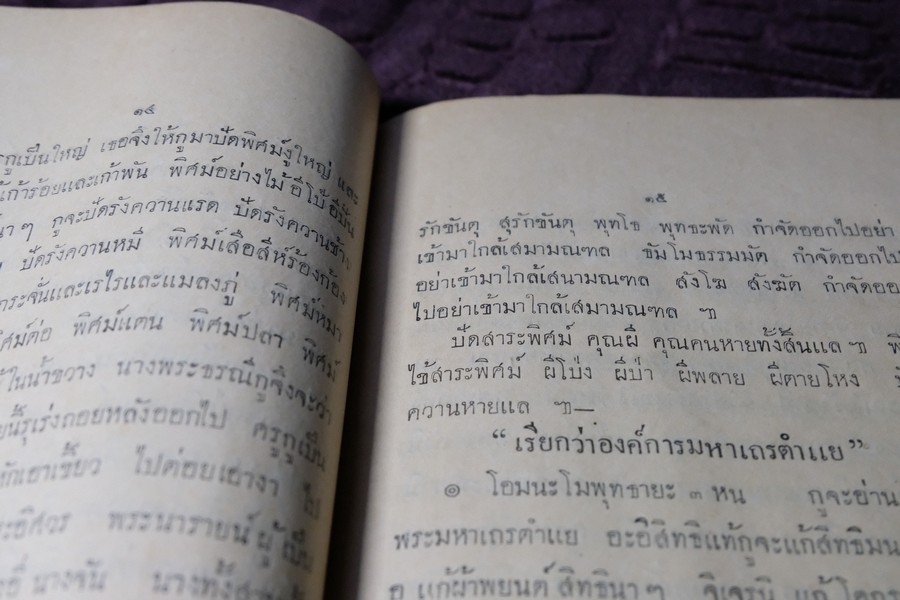 ๑๔
กูเป็นใหญ่ เขอจึ่งให้กูมาปัดพิศม์งูใหญ่ และ
เก้าร้อยและเก้าพัน พิศม์อย่างไม้ อีโบ้ อีบั้น
นาๆ กูจะปัดรังควานแรด ปัดรังควานช้าง
ปัดรังควานหมี พิศม์เสือสีห์ร้องก้อง
และเรไรและแมลงภู่ พิศม์หมา
พิศม์แตน พิศม์ปลา พิศม์
ในน้ำขวาง นางพระธรณีกูจึ่งจะว่า
รุเร่งถอยหลังออกไป ครูกูเป็น
เอาเขี้ยว ไปต่อยเอางา ไป
พระนารายน์ ผู้เป็น
นางจัน นางทั้ง
๑๕
รักขันตุ สุรักขันตุ พุทโธ พุทธะพัด กำจัดออกไปอย่า
เข้ามาใกล้เสมามณฑล ธัมโมธรรมมัด กำจัดออกไป
อย่าเข้ามาใกล้เสนามณฑล สังโฆ สังฆัด กำจัดออก
ไปอย่าเข้ามาใกล้เสมามณฑล ๚
ปัดสาระพิศม์ คุณผี คุณคนหายทั้งสิ้นแล ๚
ไข้สาระพิศม์ ผีโป่ง ผีป่า ผีพลาย ผีตายโหง
ควานหายแล ๚—
“เรียกว่าองค์การมหาเถรตำแย”
๑ โอมนะโมพุทธายะ ๓ หน กูจะอ่าน
พระมหาเถรตำแย อะอิสิทธิแท้กูจะแก้สิทธิมน
แก้ผ้าพยนต์ สิทธินาๆ